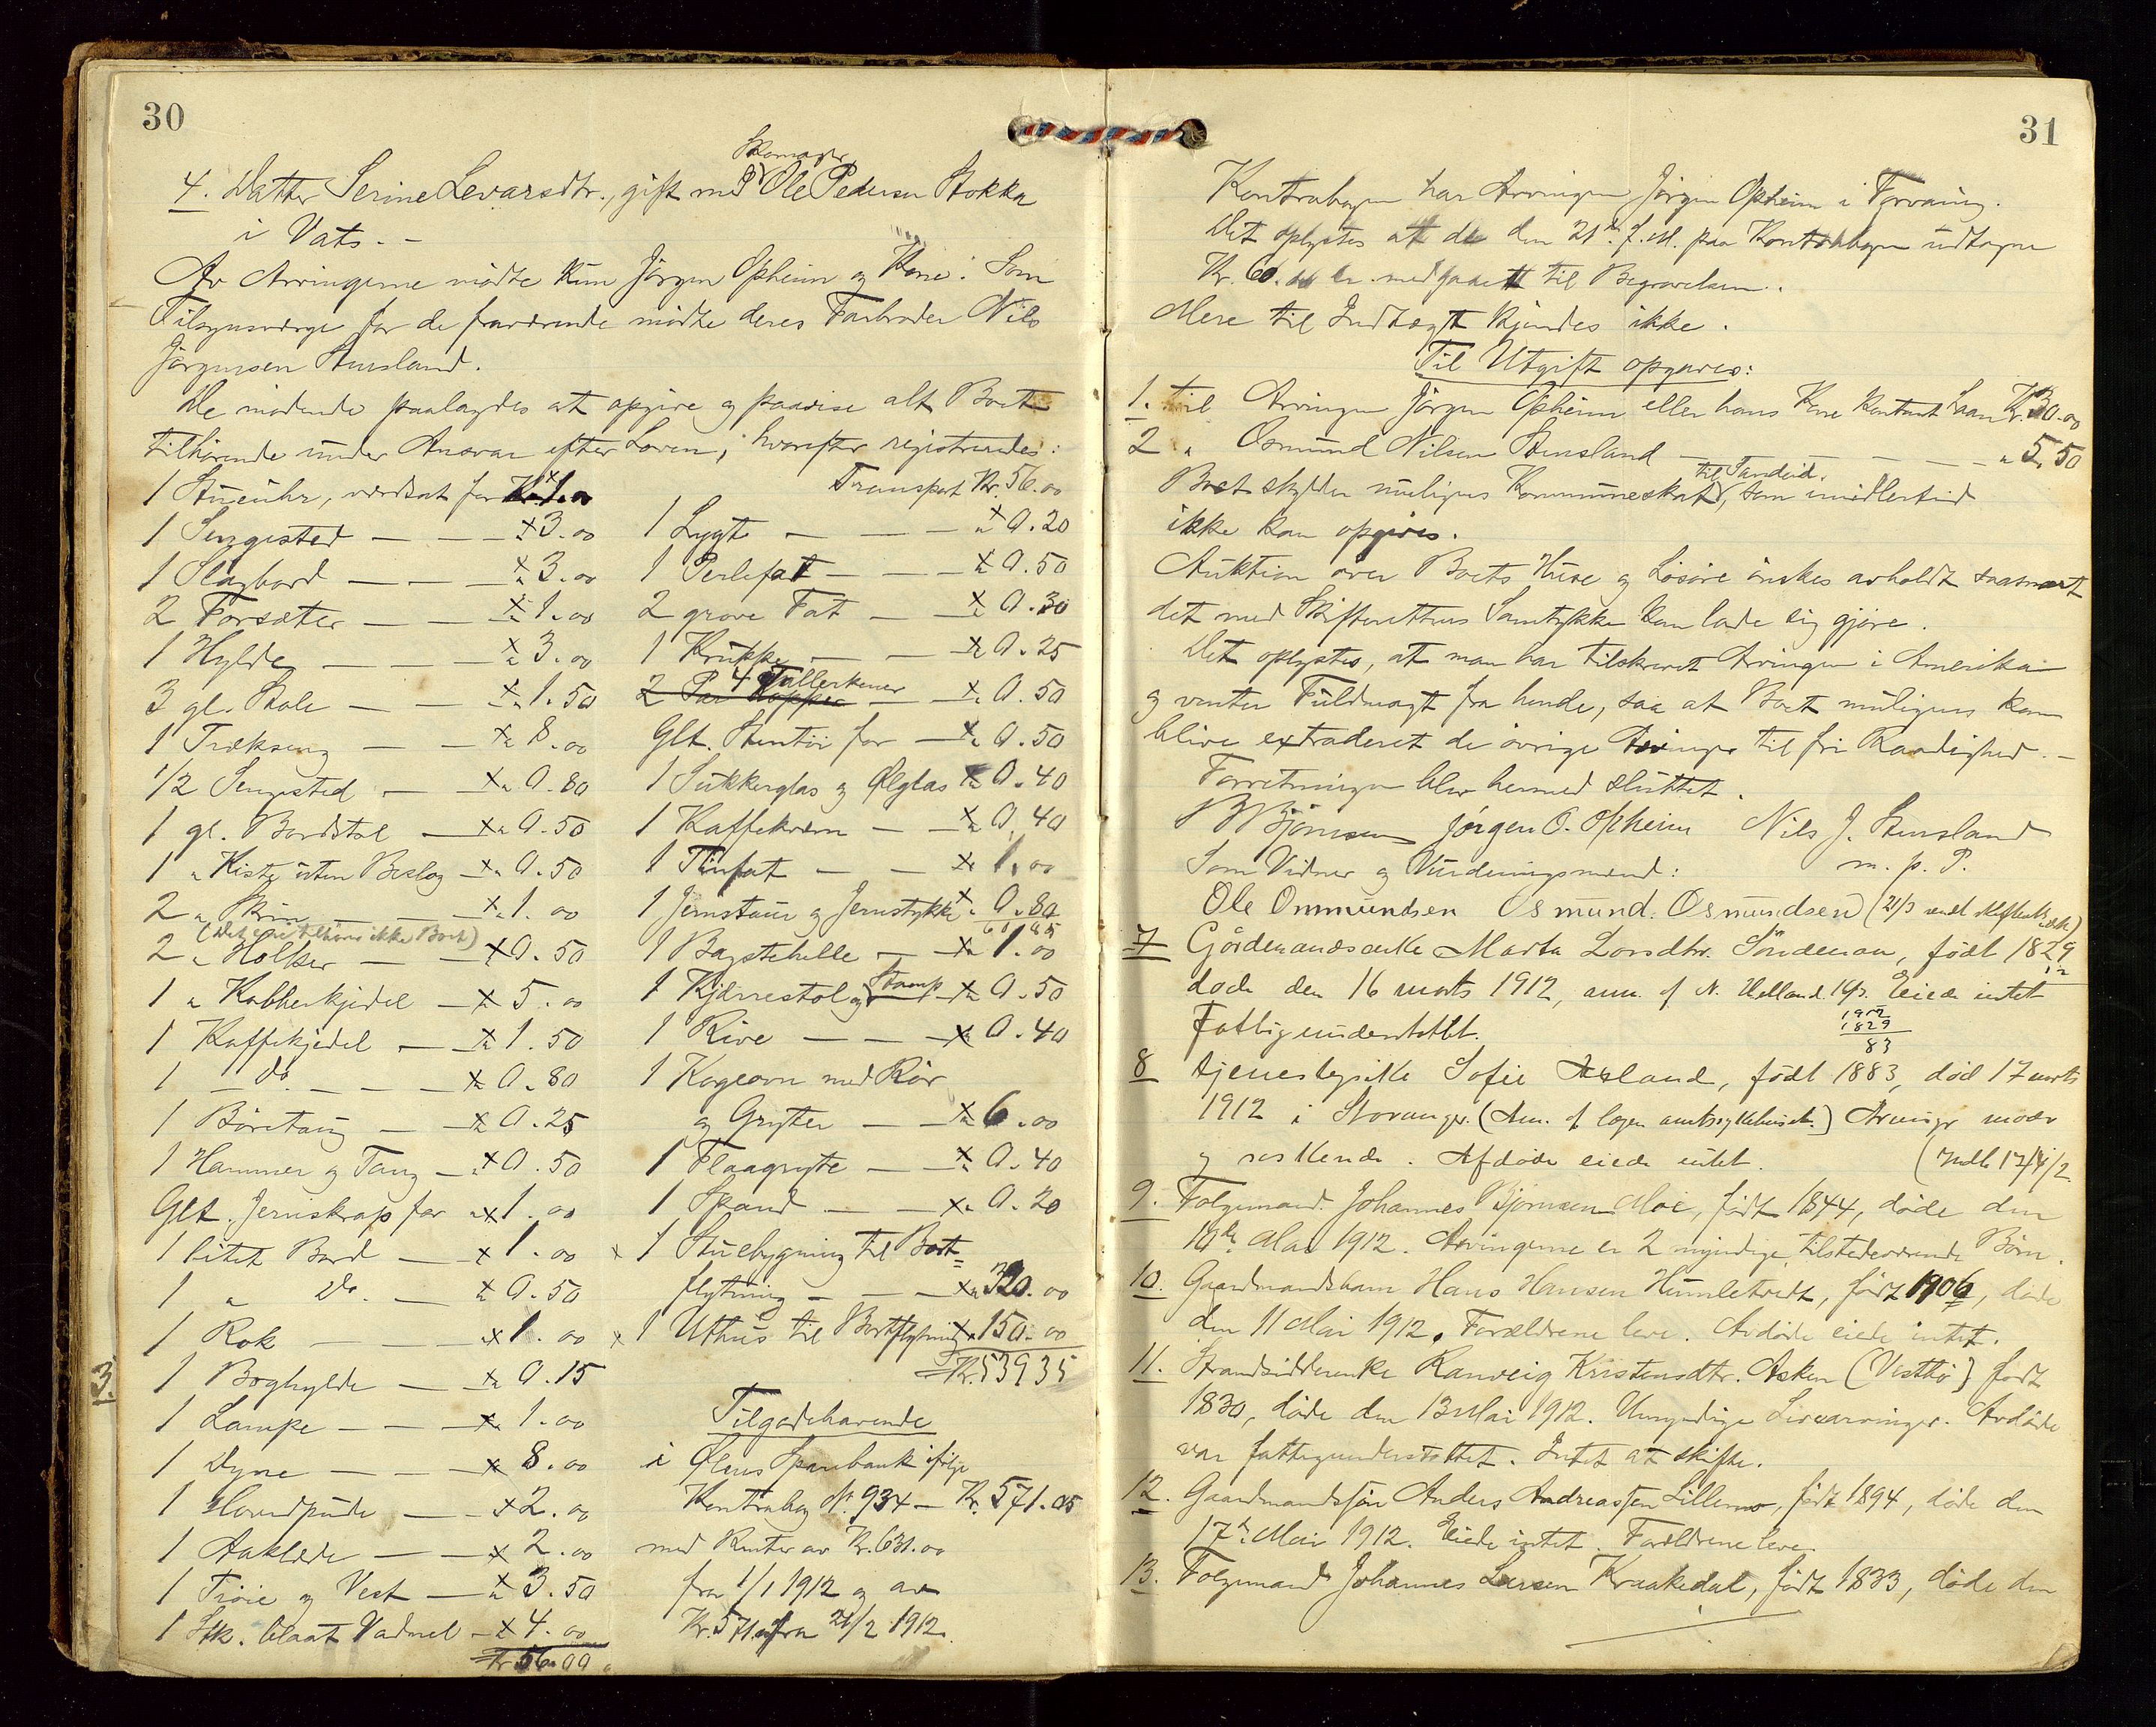 30
4. Datter Serine Levarsdtr., gift med Skomager Ole Pedersen Stokka
i Vats. -
Av Arvingerne mødte kun Jörgen Opheim og Kone. Som
Tilsynsværge for de fraværende mødte deres Farbroder Nils
Jörgensen Stensland.
De mødende paalagdes at opgive og paavise alt Boet
tilhørende under Ansvar efter Loven, hvorefter registreredes:
1 Stueuhr, værdsat for Kr. 1.00
1 Sengested — — " 3.00
1 Slagbord — — " 3.00
2 Forsæter — — " 1.00
1 Hylde — — " 3.00
3 gl. Stole — — " 1.50
1 Trækseng — — " 8.00
1/2 Sengested — " 0.80
1 gl. Bordstol — " 0.50
1 " Kiste uten Beslag — " 0.50
2 " Skrin — — " 1.00
(Det ene tilhører ikke Boet)
2 " Holker — " 0.50
1 " Kobberkjedel — " 5.00
1 Kaffekjedel — " 1.50
1 — do — — " 0.80
1 Böretaug — " 0.25
1 Hammer og Tang — " 0.50
Glt. Jernskrap for " 1.00
1 litet Bord — " 1.00
1 " Do. — " 0.50
1 Rok — " 1.00
1 Boghylde — " 0.15
1 Lampe — — " 1.00
1 Dyne — — " 8.00
1 Hovedpude — " 2.00
1 Aaklæde — " 2.00
1 Trøie og Vest — " 3.50
1 Stk. blaat Vadmel — " 4.00
Kr 56.00
Transport Kr. 56.00
1 Lygt — — " 0.20
1 Perlefat — — " 0.50
2 grove Fat — " 0.30
1 Krukke — — " 0.25
2 Par Kopper 4 Tallerkener — " 0.50
Glt. Stentöi for — " 0.50
1 Sukkerglas og Ølglas " 0.40
1 Kaffekværn — " 0.40
1 Tinfat — — " 1.00
1 Jernstaur og Jernstykke " 0.80
60 85
1 Bagstehelle — " 1.00
1 Kjærrestol og Stamp — " 0.50
1 Rive — — " 0.40
1 Kogeovn med Rör
og Gryter — — " 6.00
1 Flaagryte — " 0.40
1 Spand — — " 0.20
x 1 Stuebygning til Bort=
flytning — — " 320.00
x 1 Uthus til Bortflytning " 150.00
Kr. 539 35
Tilgodehavende
i Ølens Sparebank ifølge
Kontrabog No. 934 — Kr. 571.05
med Renter av Kr. 631.00
fra 1/1 1912 og av
Kr. 571.05 fra 21/2 1912.
3.
31
Kontrabogen har Arvingen Jörgen Opheim i Forvaring.
Det oplystes at de den 21de f. M. paa Kontrabogen udtagne
Kr. 60.00 er medgaaet til Begravelsen.
Mere til Indtægt kjendes ikke.
Til Utgift opgaves:
1. til Arvingen Jörgen Opheim eller hans Kone kontant Laan Kr. 30.00
2 " Osmund Nilsen Stensland — — — — " 5.50
Boet skylder muligens Kommuneskat til Sandeid, som imidlertid
ikke kan opgives.
Auktion over Boets Huse og Lösöre önskes avholdt saasnart
det med Skifterettens Samtykke kan lade sig gjöre.
Det oplystes, at man har tilskrevet Arvingen i Amerika
og venter Fuldmagt fra hende, saa at Boet muligens kan
blive extraderet de övrige Arvinger til fri Raadighed. —
Forretningen blev hermed sluttet.
Bjørnsen Jörgen O. Opheim Nils J. Stensland
Som Vidner og Vurderingsmænd: m. p. P.
Ole Ommundsen Osmund. Osmundsen (21/3 sendt
7 Gårdmandsenke Marta Larsdtr. Söndenaa, födt 1829
döde den 16 marts 1912, anm. af N. Helland 16/3. Eiede intet
Fattigunderstöttet.
1912
1829
83
8 tjenestepike Sofie Årland, födt 1883, död 17 marts
1912 i Stavanger. (Anm. af lægen amtssykehuset.) Arvinger moder
og søskende. Afdöde eiede intet. (Indb 17/4/12
9. Folgemand Johannes Bjørnsen Moe, födt 1844, döde den
10de Mai 1912. Arvingerne er 2 myndige, tilstedeværende Börn.
10. Gaardmandsbarn Hans Hansen Humletvedt, födt 1906, döde
den 11 Mai 1912. Forældrene lever. Avdöde eiede intet.
11. Strandsidderenke Ranveig Kristensdtr. Asken (Vestbö) födt
1830, döde den 13 Mai 1912. Umyndige Livsarvinger. Avdöde
var fattigunderstöttet. Intet at skifte.
12. Gaardmandssön Anders Andreassen Lillemo, födt 1894, döde den
17de Mai 1912. Eiede intet. Forældrene lever.
13. Folgemand Johannes Larsen Kraakedal, födt 1833, döde den